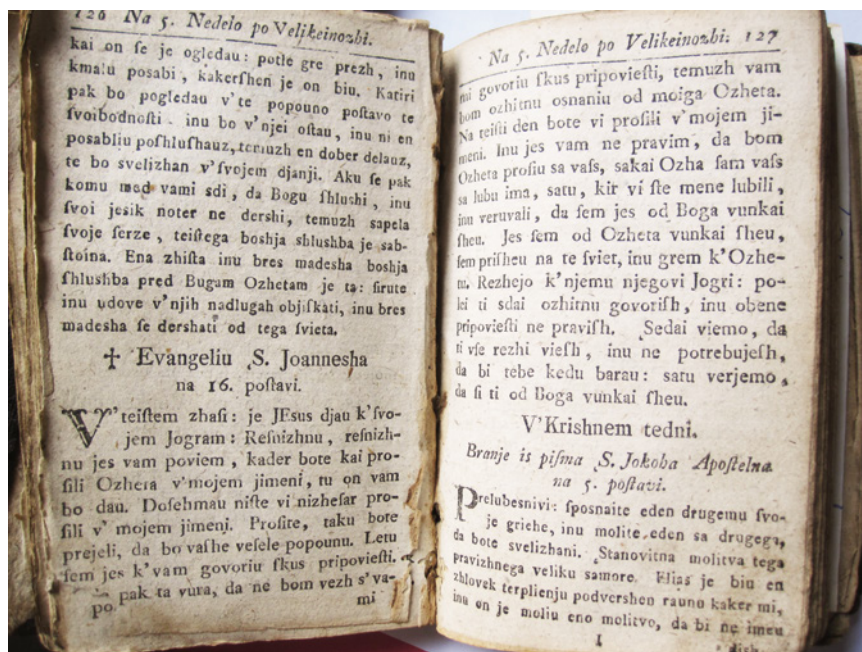 126 Na 5. Nedelo po Velikeinozhi.
kai on ſe je ogledau: potle gre prezh, inu
kmalu posabi, kakerſhen je on biu. Katiri
pak bo pogledau v'te popouno poſtavo te
ſvoibodnoſti. inu bo v'njei oſtau, inu ni en
posabliu poſhluſhauz, temuzh en dober delauz,
te bo svelizhan v'ſvojem djanji. Aku ſe pak
komu med vami sdi, da Bogu ſhluſhi, inu
ſvoi jesik noter ne dershi, temuzh sapela
ſvoje ſerze, teiſtega boshja shlushba je sab-
ſtoina. Ena zhiſta inu bres madesha boshja
ſhlushba pred Bugam Ozhetam je ta: ſirute
inu udove v'njih nadlugah objiſkati, inu bres
madesha ſe dershati od tega ſvieta.
✝ Evangeliu S. Joannesha
na 16. poſtavi.
V'teiſtem zhaſi: je JEsus djau k'ſvo-
jem Jogram: Reſnizhnu, reſnizh-
nu jes vam poviem, kader bote kai pro-
ſili Ozheta v'mojem jimeni, tu on vam
bo dau. Doſehmau niſte vi nizheſar pro-
ſili v' mojem jimeni. Proſite, taku bote
prejeli, da bo vaſhe veſele popounu. Letu
ſem jes k'vam govoriu ſkus pripovieſti.
po pak ta vura, da ne bom vezh s'va-
mi
Na 5. Nedelo po Velikeinozhi. 127
mi govoriu ſkus pripovieſti, temuzh vam
bom ozhitnu osnaniu od moiga Ozheta.
Na teiſti den bote vi proſili v'mojem ji-
meni. Inu jes vam ne pravim, da bom
Ozheta proſiu sa vaſs, sakai Ozha ſam vaſs
sa lubu ima, satu, kir vi ſte mene lubili,
inu veruvali, da ſem jes od Boga vunkai
ſheu. Jes ſem od Ozheta vunkai ſheu,
ſem priſheu na te ſviet, inu grem k'Ozhe-
tu. Rezhejo k'njemu njegovi Jogri: po-
lei ti sdai ozhitnu govoriſh, inu obene
pripovieſti ne praviſh. Sedai viemo, da
ti vſe rezhi vieſh, inu ne potrebujeſh,
da bi tebe kedu barau: satu verjemo,
da ſi ti od Boga vunkai ſheu.
V'Krishnem tedni.
Branje is piſma S. Jokoba Apoſtelna
na 5. poſtavi.
Prelubesnivi: ſposnaite eden drugemu ſvo-
je griehe, inu molite eden sa drugega,
da bote svelizhani. Stanovitna molitva tega
pravizhnega veliku samore. Elias je biu en
zhlovek terplienju podvershen rauno kaker mi,
inu on je moliu eno molitvo, da bi ne imeu
I